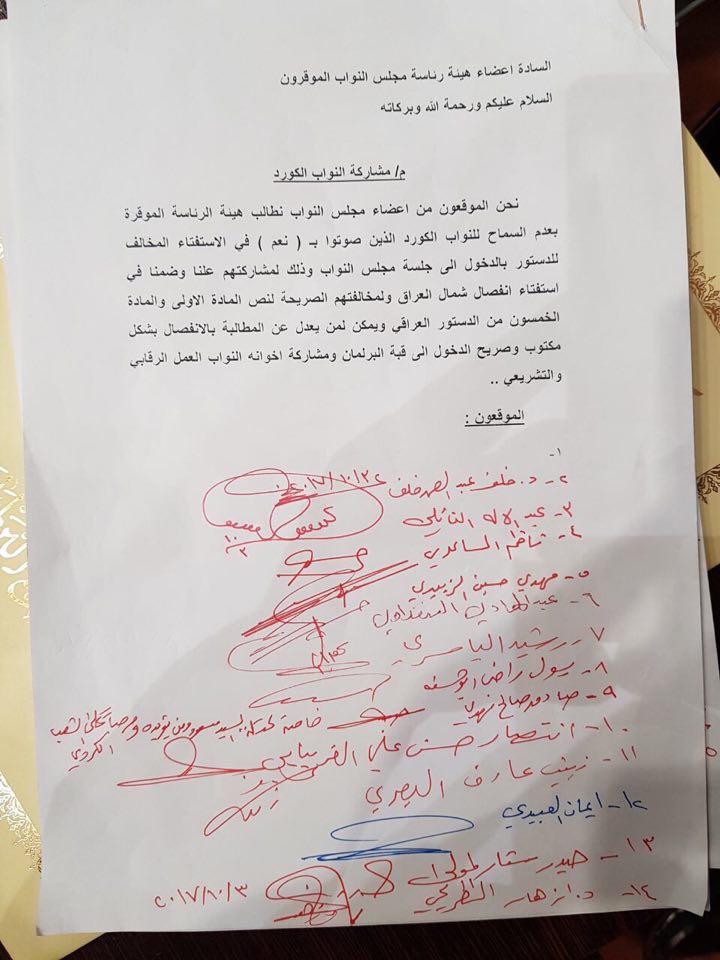 السادة اعضاء هيئة رئاسة مجلس النواب الموقرون
السلام عليكم ورحمة الله وبركاته
م/ مشاركة النواب الكورد
نحن الموقعون من اعضاء مجلس النواب نطالب هيئة الرئاسة الموقرة
بعدم السماح للنواب الكورد الذين صوتوا بـ ( نعم ) في الاستفتاء المخالف
للدستور بالدخول الى جلسة مجلس النواب وذلك لمشاركتهم علنا وضمنا في
استفتاء انفصال شمال العراق ولمخالفتهم الصريحة لنص المادة الاولى والمادة
الخمسون من الدستور العراقي ويمكن لمن يعدل عن المطالبة بالانفصال بشكل
مكتوب وصريح الدخول الى قبة البرلمان ومشاركة اخوانه النواب العمل الرقابي
والتشريعي ..
الموقعون :
١-
٢- د. خلف عبد الصمد خلف
٣- عبد الاله النائلي
٤- كاظم الساعدي
٥- مهدي حسين الزبيدي
٦- عبد الهادي
٧- رشيد الياسري
٨- رسول راضي
٩- صالح
١٠- انتصار حسن علي
١١- زينب عارف البصري
١٢- ايمان العبيدي
١٣- حيدر ستار المولى
١٤- د. ازهار الطريحي ٢٠١٧/١٠/٣